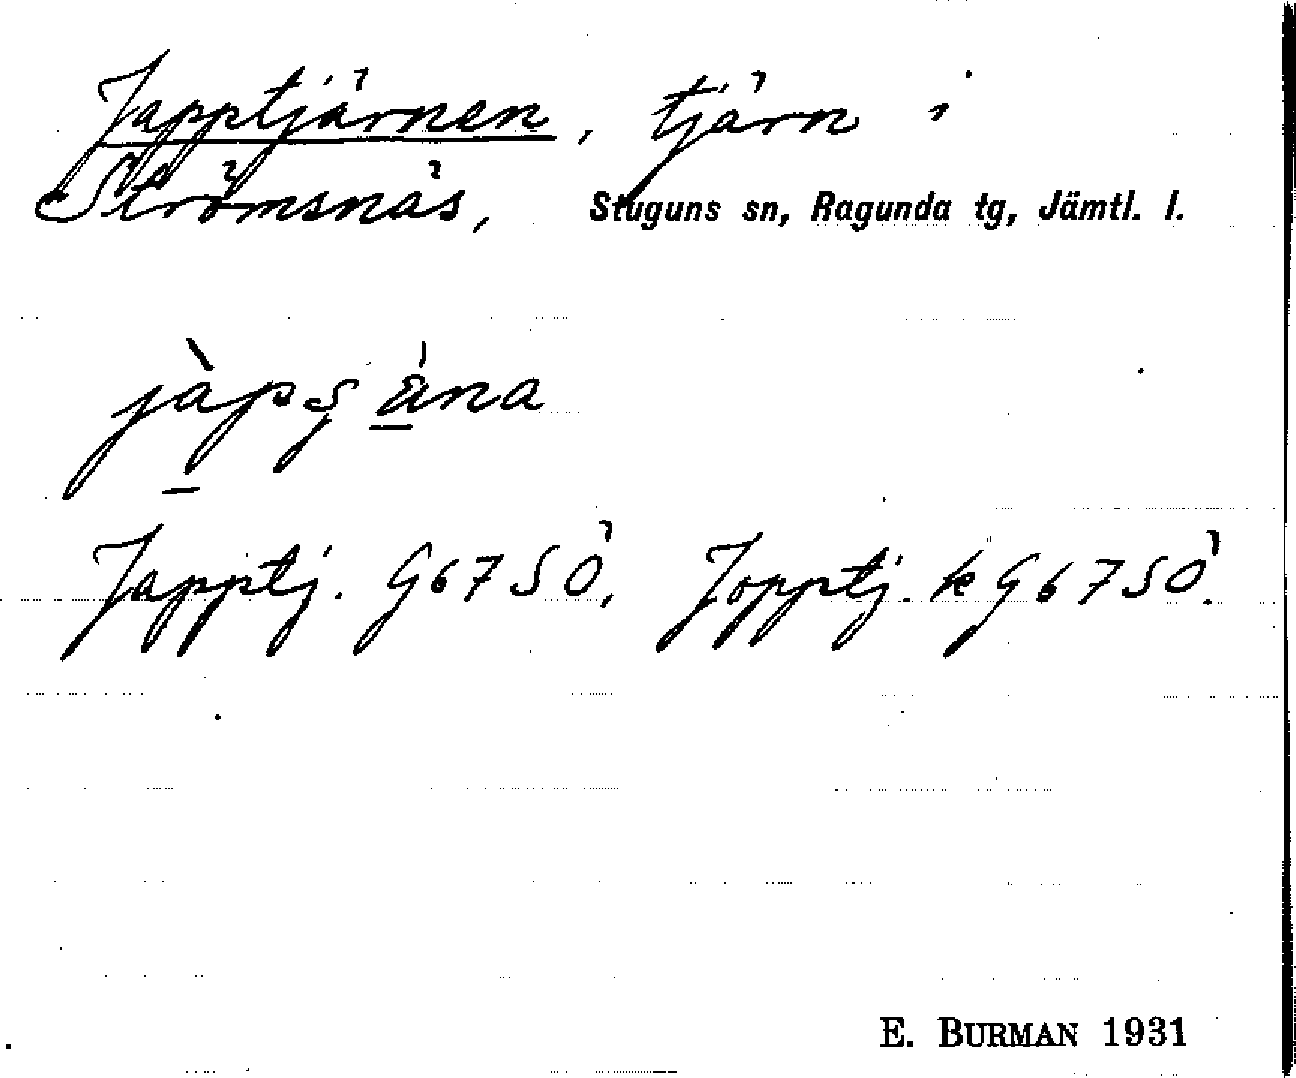 Japptjärnen, tjärn i
Strömsnäs, Stuguns sn, Ragunda tg, Jämtl. l.
Japptj. G67SÖ, Jopptj. k G67SÖ.
E. BURMAN 1931